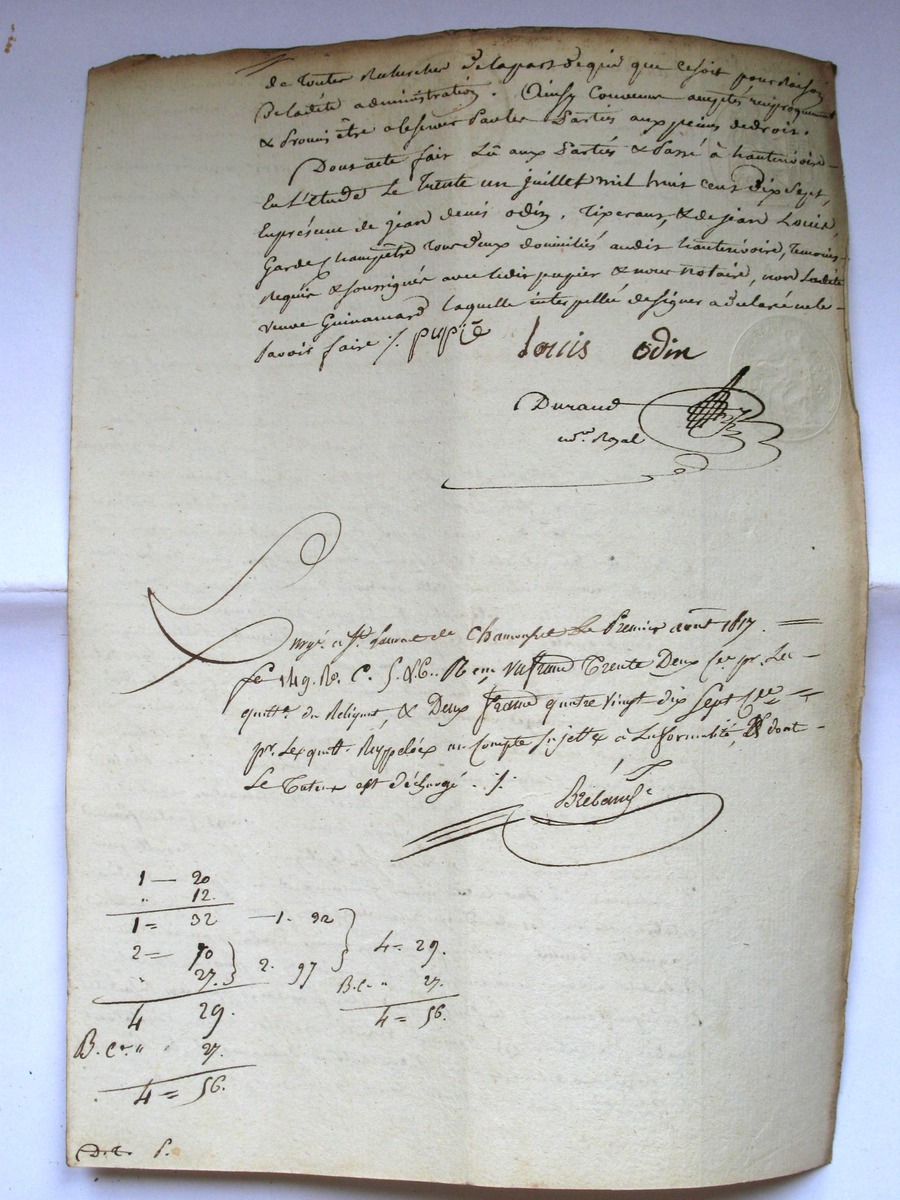 de toutes Recherches de la part de qui que ce soit pour Raison
de ladite administration. Ainsy Convenu accepté réciproquement
& Promis être observé Par les Parties aux peines de droit.
Dont acte fait Lû aux Parties & Passé à hauterivoire
En L'étude Le Trente un juillet mil huit cent dix Sept,
En présence de jean denis odin, Tixerant, & de jean Louis,
Garde Champêtre Tous deux domiciliés audit hauterivoire, Temoins
Requis & soussignés avec ledit pupier & nous notaire, non Ladite
veuve Guinamard laquelle interpellée de signer a declaré ne le
savoir faire ./. pupié
Louis odin
Durand
nre. Royal
Enrgé. a St. Laurent de Chamousset Le Premier août 1817.
fo 149. Ro. C. 5. & 6. R en un franc Trente Deux Ces pr. Les
quitte. du Reliquat, & Deux francs quatre vingt dix Sept Ces
pr. Les quitt. Rappelées au Compte Sujettes a La formalité, & dont
Le Tuteur est déchargé ./.
1 — 20
" 12.
1 = 32 — 1. 32
2 = 70
" 27. 2. 97 4 = 29.
B.C. " 27.
4 29. 4 = 56.
B. Ce. " 27.
4 = 56.